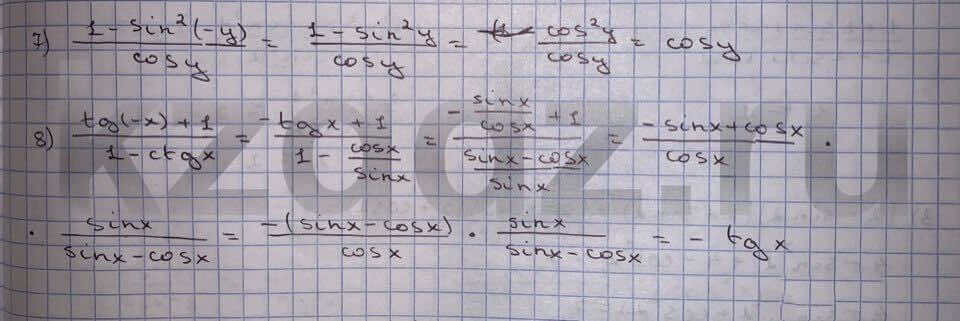 7) (1 - sin²(-y))/(cosy) = (1 - sin²y)/(cosy) = (cos²y)/(cosy) = cosy
8) (tg(-x) + 1)/(1 - ctgx) = (-tgx + 1)/(1 - cosx/sinx) = (-sinx/cosx + 1)/((sinx - cosx)/sinx) = (-sinx + cosx)/(cosx) ·
· (sinx)/(sinx - cosx) = (-(sinx - cosx))/(cosx) · (sinx)/(sinx - cosx) = - tgx
kzgdz.ru